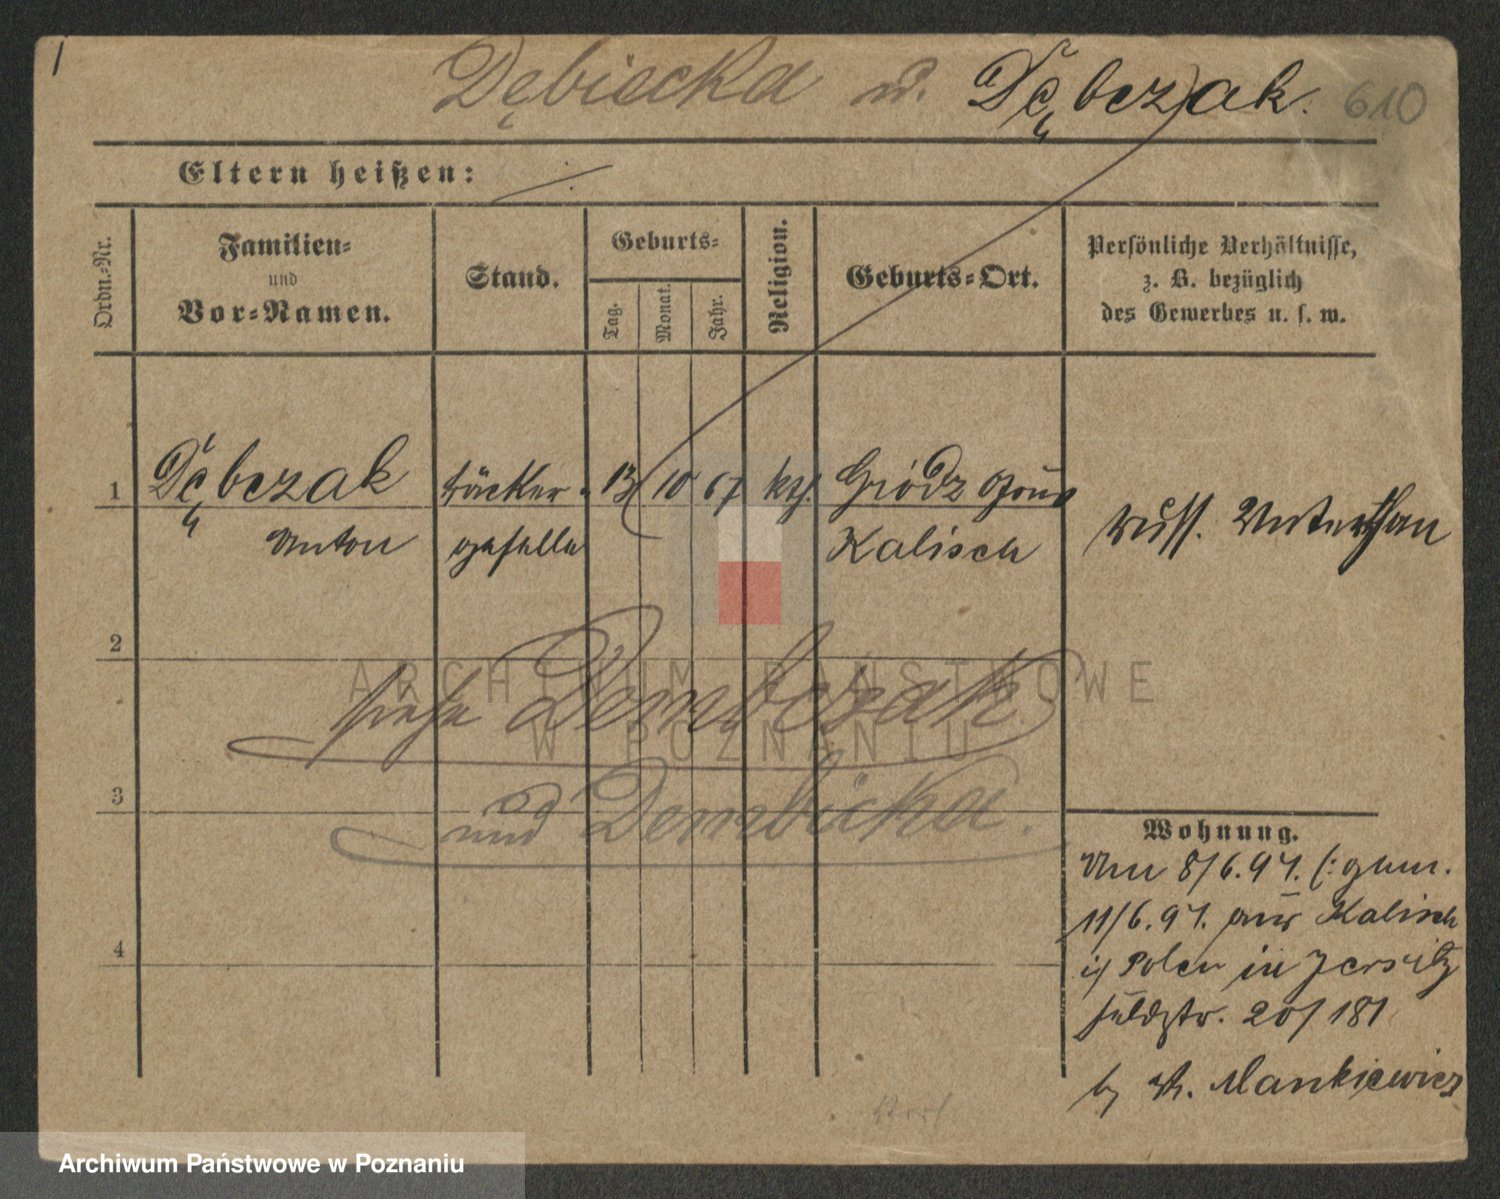 Dębiecka u. Dębczak. 610
Eltern heißen:
Ordn.-Nr.
Familien-
und
Vor-Namen.
Stand.
Geburts-
Tag.
Monat.
Jahr.
Religion.
Geburts-Ort.
Persönliche Verhältnisse,
z. B. bezüglich
des Gewerbes u. s. w.
1 Dębczak Bäcker- 13 10 67 kth. Gródz Gouv
Anton geselle Kalisch russ. Unterthan
2
siehe Dembczak
3
und Dembicka.
4
Wohnung.
Am 8/6.97. (: gem.
11/6.97. aus Kalisch
i/ Polen in Jersitz
Feldstr. 20/181
b/ Mankiewicz
ARCHIWUM PAŃSTWOWE
W POZNANIU
Archiwum Państwowe w Poznaniu